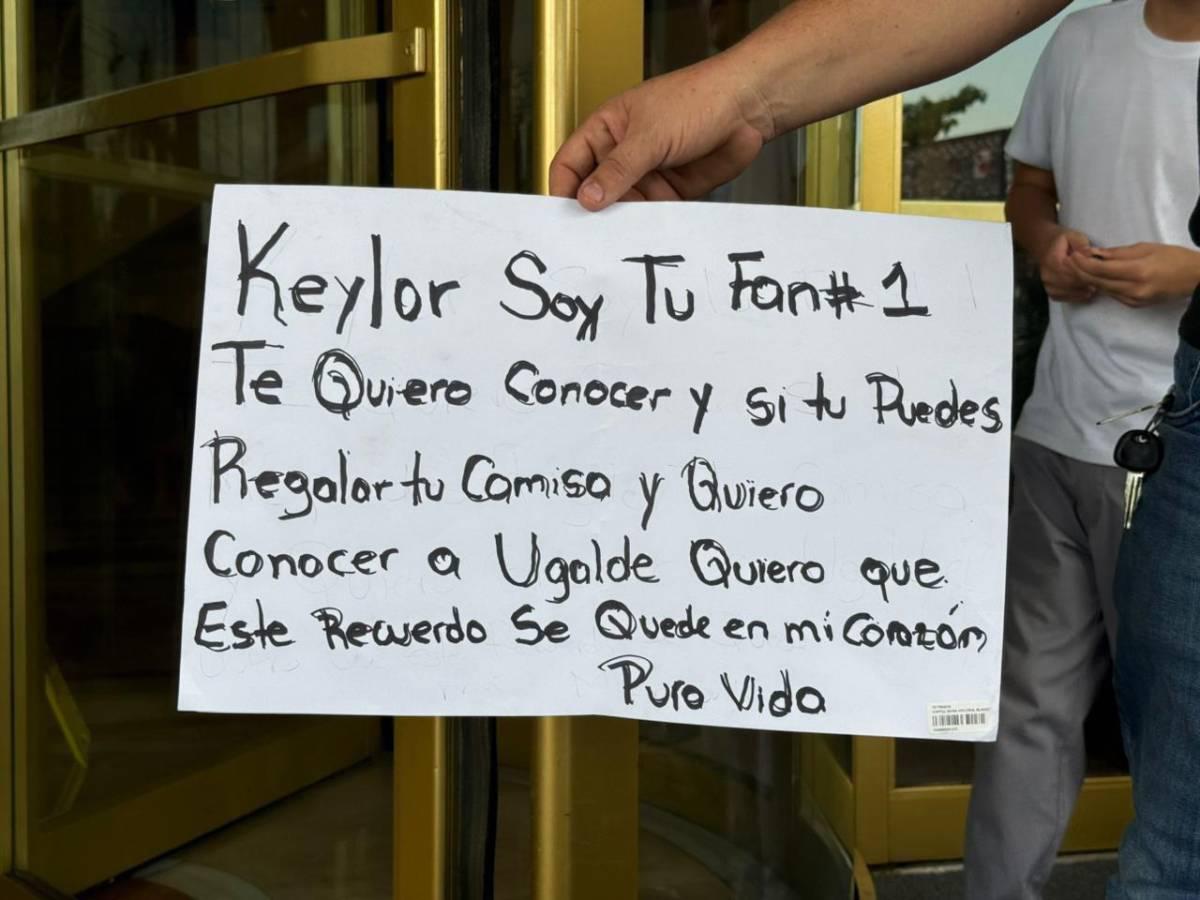 Keylor Soy Tu Fan# 1
Te Quiero Conocer y si tu Puedes
Regalar tu Camisa y Quiero
Conocer a Ugalde Quiero que
Este Recuerdo Se Quede en mi Corazón
Pura Vida